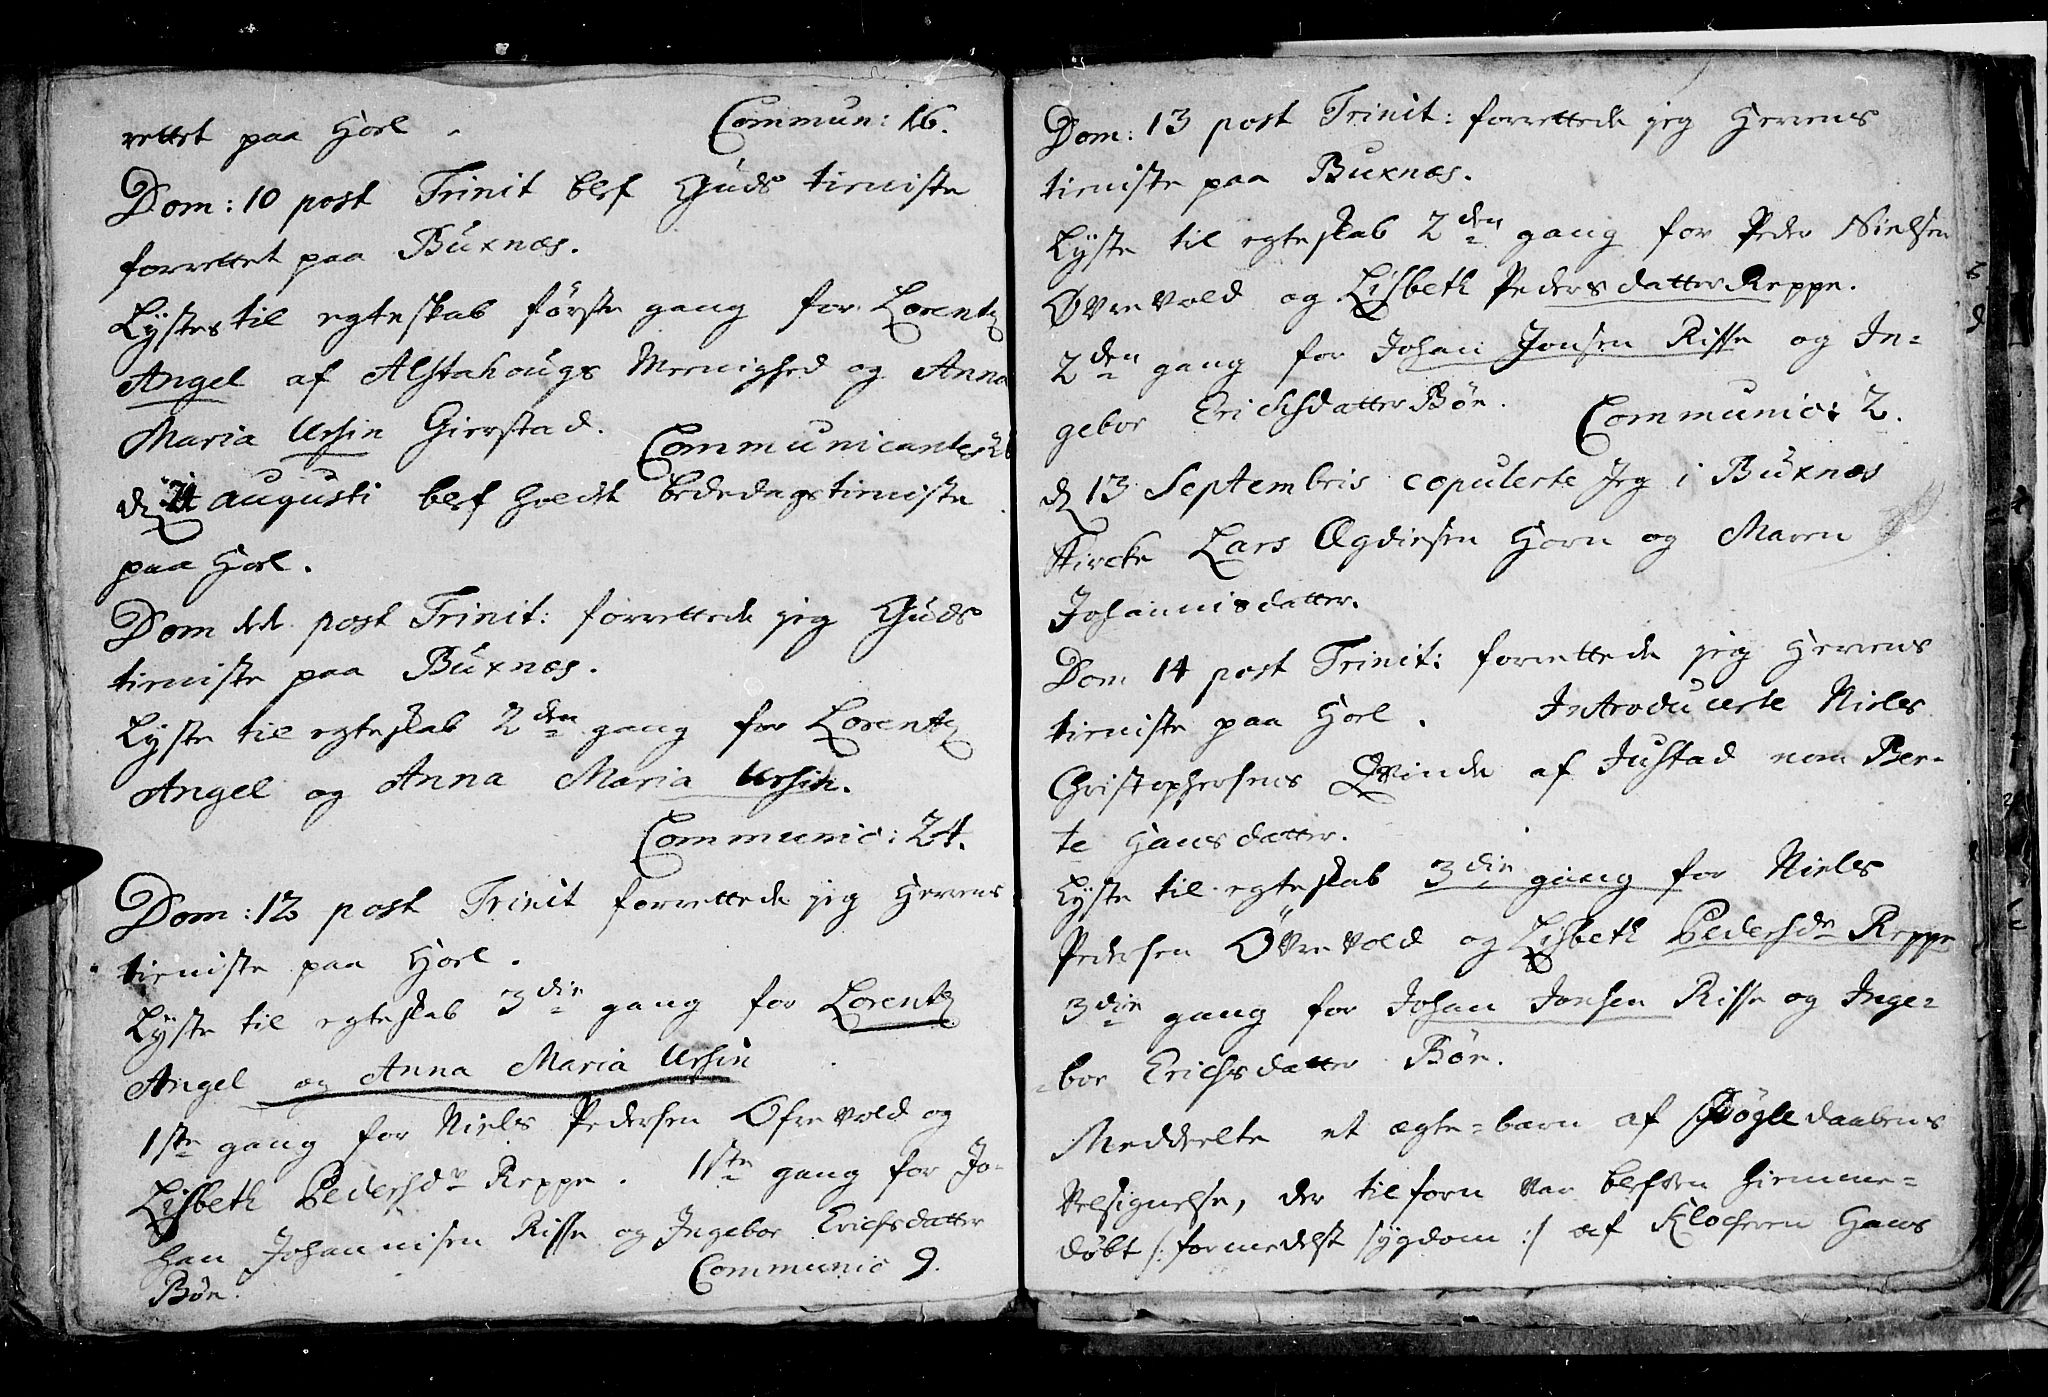 rettet paa Hoel. Commun: 16.
Dom: 10 post Trinit blef Guds tieniste
forrettet paa Buxnæs.
Lystes til egteskab første gang for Lorentz
Angel af Alstahougs Meenighed og Anna
Maria Ursin Gierstad. Communicantes
d. augusti blef holdt bededags tieniste
paa Hoel.
Dom 11 post Trinit: forrettede jeg Guds
tieniste paa Buxnæs.
Lyste til egteskab 2den gang for Lorentz
Angel og Anna Maria Ursin.
Communic: 24.
Dom: 12 post Trinit forrettede jeg Herrens
tieniste paa Hoel.
Lyste til egteskab 3die gang for Lorentz
Angel og Anna Maria Ursin
1ste gang for Niels Pedersen Ofrevold og
Lisbeth Pedersdr Reppe. 1ste gang for Jo-
han Johannisen Risse og Ingebor Erichsdatter
Bøe. Communic 9.
Dom: 13 post Trinit: forrettede jeg Herrens
tieniste paa Buxnæs.
Lyste til egteskab 2den gang for Peder Nielsen
Øvrevold og Lisbeth Pedersdatter Reppe.
2den gang for Johan Jonsen Risse og In-
gebor Erichsdatter Bøe. Communic: 2.
d 13 Septembris copulerte Jeg i Buxnæs
Kircke Lars Ogdiesen Horn og Maren
Johannisdatter.
Dom 14 post Trinit: forrettede jeg Herrens
tieniste paa Hoel. Introducerte Niels
Christophersens Qvinde af Justad nom Ber-
te Hansdatter.
Lyste til egteskab 3die gang for Niels
Pedersen Øvrevold og Lisbeth Pedersdr Reppe
3die gang for Johan Jonsen Risse og Inge-
-bor Erichsdatter Bøe.
Meddeelte et ægte-barn af daabens
Velsignelse, der tilforn var blefven hiemme-
døbt /: formedelst sygdom :/ af Klocheren Hans